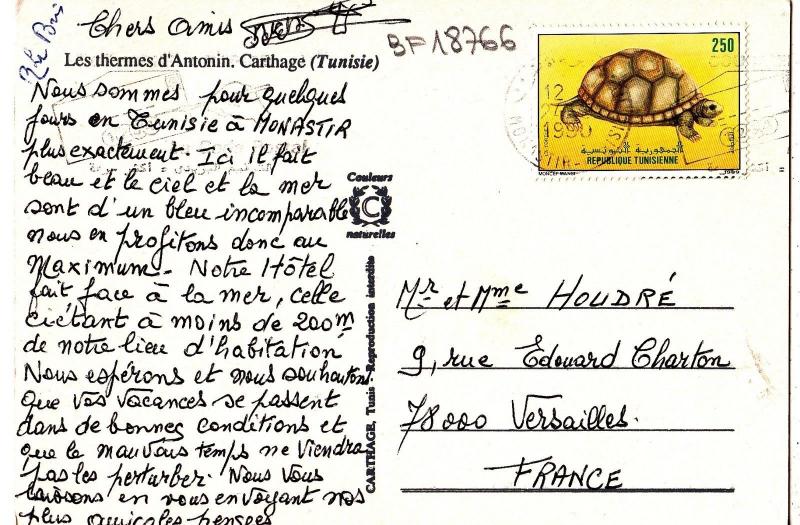 Le Bris
Chers Amis
BF18766
Les thermes d'Antonin. Carthage (Tunisie)
Nous sommes pour quelques
jours en Tunisie à MONASTIR
plus exactement. Ici il fait
beau et le ciel et la mer
sont d'un bleu incomparable
nous en profitons donc au
Maximum - Notre Hôtel
fait face à la mer, celle
ci étant à moins de 200m
de notre lieu d'habitation
Nous espérons et nous souhaitons
que vos vacances se passent
dans de bonnes conditions et
que le mauvais temps ne viendra
pas les perturber. Nous vous
laissons en vous envoyant nos
plus amicales pensées
Couleurs
C
naturelles
CARTHAGE, Tunis - Reproduction interdite
250
12
1990
الجمهورية التونسية
REPUBLIQUE TUNISIENNE
1989
Mr et Mme HOUDRÉ
9, rue Edouard Charton
78000 Versailles.
FRANCE